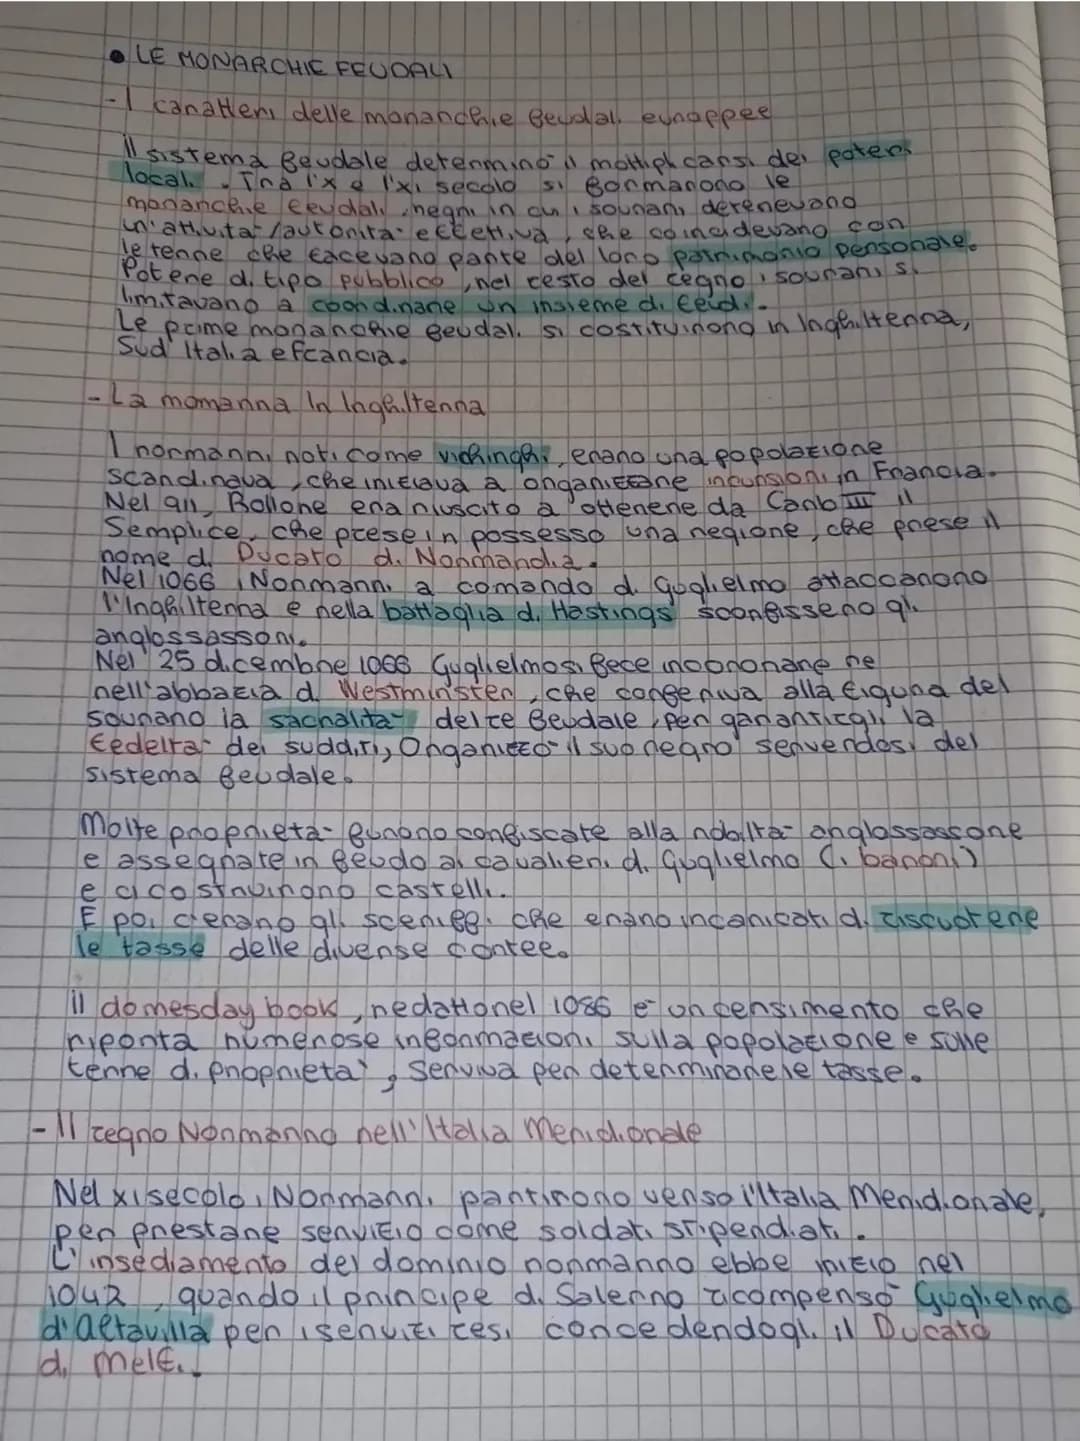 • LE MONARCHIE FEUDALI
- I caratteri delle monarchie feudali europpee
Il sistema feudale determinò il moltiplicarsi dei poteri
locali. Tra l'x e l'xi secolo si formarono le
monarchie feudali, regni in cui i sovrani detenevano
un'attivita/autorità effettiva, che coincidevano con
le terre che facevano parte del loro patrimonio personale.
Potere di tipo pubblico, nel resto del regno i sovrani si
limitavano a coordinare un insieme di feudi.
Le prime monarchie feudali si costituirono in Inghilterra,
Sud Italia e francia.
- La momanna In Inghilterra
I normanni noti come vichinghi, erano una popolazione
scandinava, che iniziava a organizzare incursioni in Francia.
Nel 911, Rollone era riuscito a ottenere da Carlo III il
Semplice, che prese in possesso una regione, che prese il
nome di Ducato di Normandia.
Nel 1066 i Normanni a comando di Guglielmo attaccarono
l'Inghilterra e nella battaglia di Hastings sconfissero gli
anglossassoni.
Nel 25 dicembre 1066 Guglielmo si fece incoronare re
nell'abbazia di Westminster, che conferiva alla figura del
sovrano la sacralità del re feudale, per garantirgli la
fedeltà dei sudditi, Organizzò il suo regno servendosi del
sistema feudale.
Molte proprietà furono confiscate alla nobiltà anglossassone
e assegnate in feudo ai cavalieri di Guglielmo (i baroni)
e ci costruirono castelli.
E poi c'erano gli sceriffi che erano incaricati di riscuotere
le tasse delle diverse contee.
Il domesday book, redatto nel 1086 è un censimento che
riporta numerose informazioni sulla popolazione e sulle
terre di proprietà, serviva per determinare le tasse.
- Il regno Normanno nell'Italia Meridionale
Nel xi secolo i Normanni partirono verso l'Italia Meridionale,
per prestare servizio come soldati stipendiati.
L'insediamento del dominio normanno ebbe inizio nel
1042, quando il principe di Salerno ricompensò Guglielmo
d'altavilla per i servizi resi concedendogli il Ducato
di melfi.